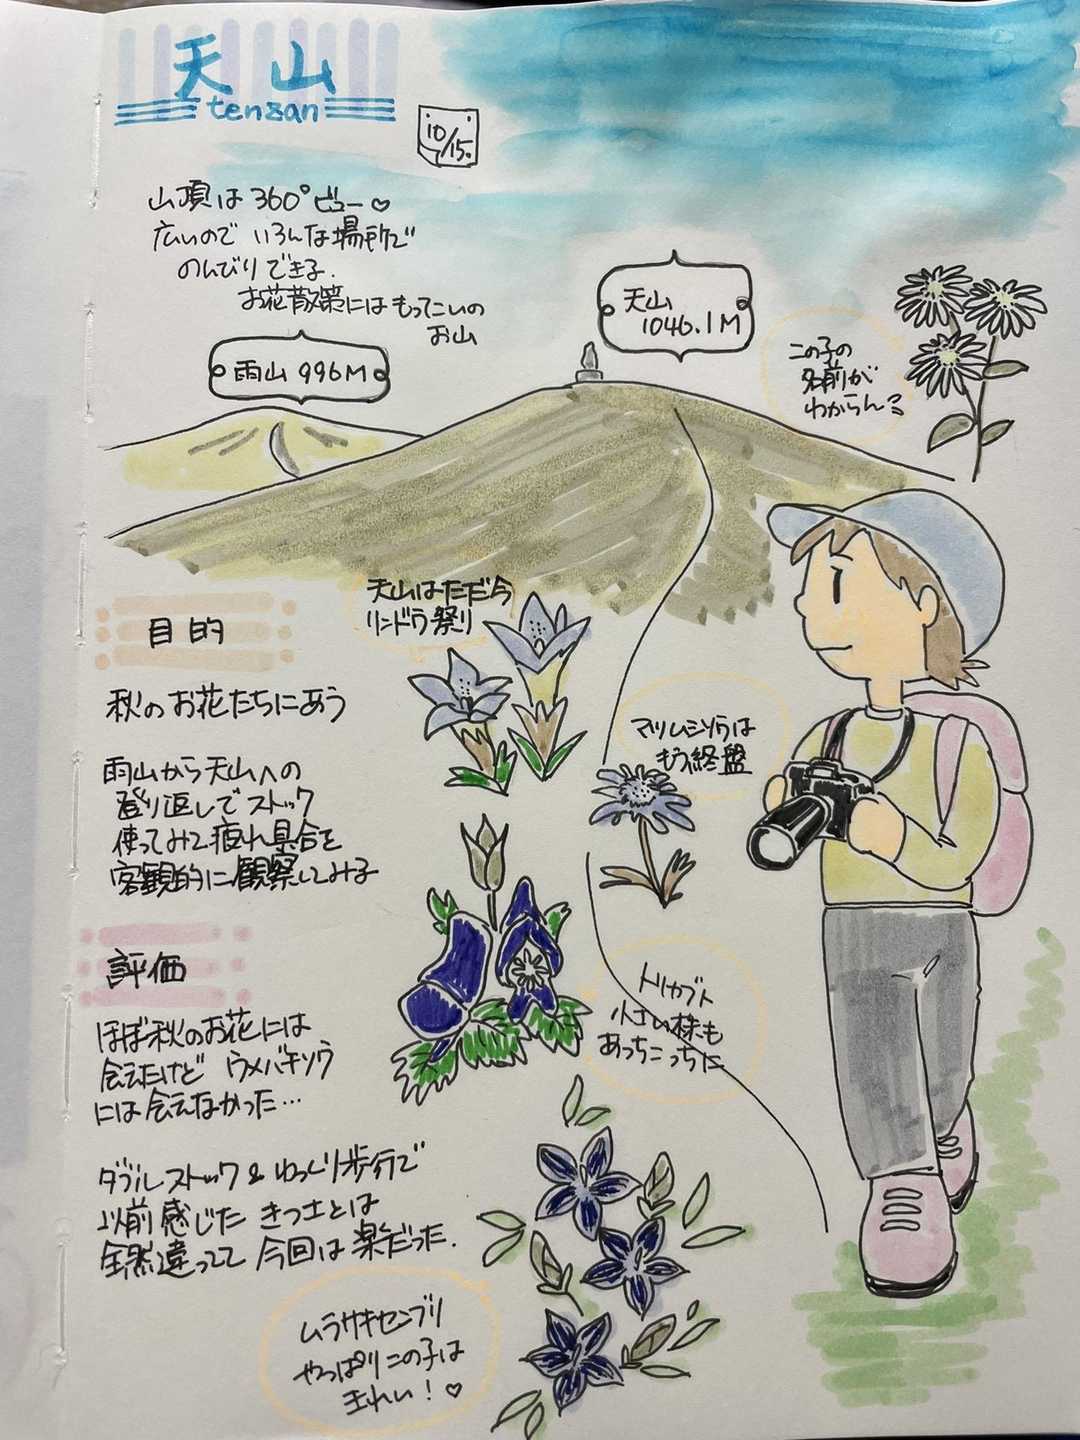 天山
tenzan
10/15.
山頂は360°ビュー♡
広いので いろんな場所で
のんびりできる.
お花散策には もってこいの
お山
天山
1046.1M
雨山 996M
この子の
名前が
わからん
天山はただ今
リンドウ祭り
目的
秋のお花たちにあう
雨山から天山への
登り返しでストック
使ってみて疲れ具合を
客観的に観察してみる
マツムシソウは
もう終盤
評価
ほぼ秋のお花には
会えたけど ウメバチソウ
には会えなかった…
トリカブト
小さい株も
あっちこっちに
ダブルストック&ゆっくり歩行で
以前感じた きつさとは
全然違ってて 今回は楽だった.
ムラサキセンブリ
やっぱりこの子は
きれい!♡